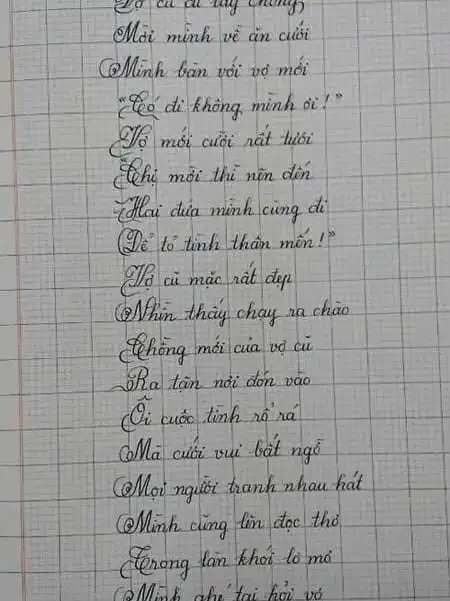 Vợ cũ đi lấy chồng
Mời mình về ăn cưới
Mình bàn với vợ mới
"Có đi không mình ơi!"
Vợ mới cười rất tươi
"Chị mời thì nên đến
Hai đứa mình cùng đi
Để tỏ tình thân mến!"
Vợ cũ mặc rất đẹp
Nhìn thấy chạy ra chào
Chồng mới của vợ cũ
Ra tận nơi đón vào
Ôi cuộc tình rổ rá
Mà cưới vui bất ngờ
Mọi người tranh nhau hát
Mình cũng lên đọc thơ
Trong làn khói lơ mơ
Mình ghé tai hỏi vợ